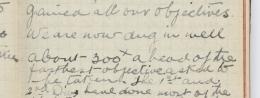 gained all our objectives.
We are now dug in well
about 300x ahead of the
farthest objective set us to
The 1st and
2nd Div have done most of the